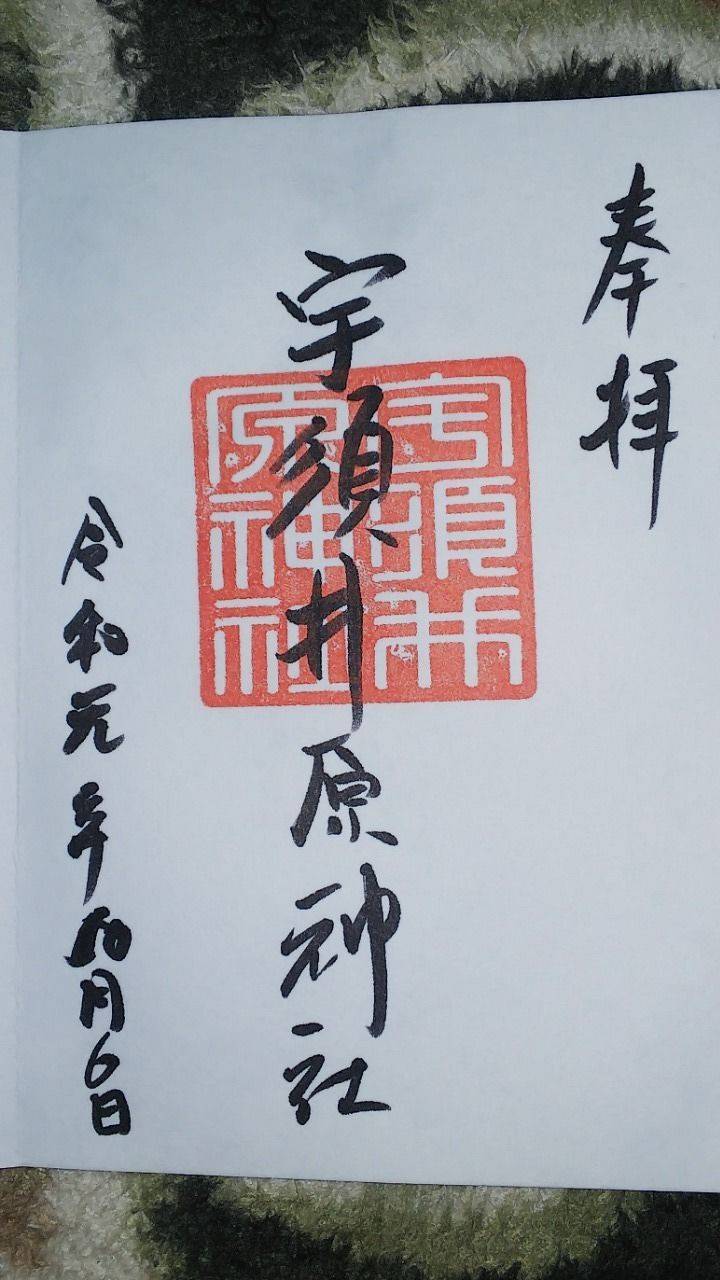 奉拝
宇須井原神社
宇須井
原神社
令和元年月6日